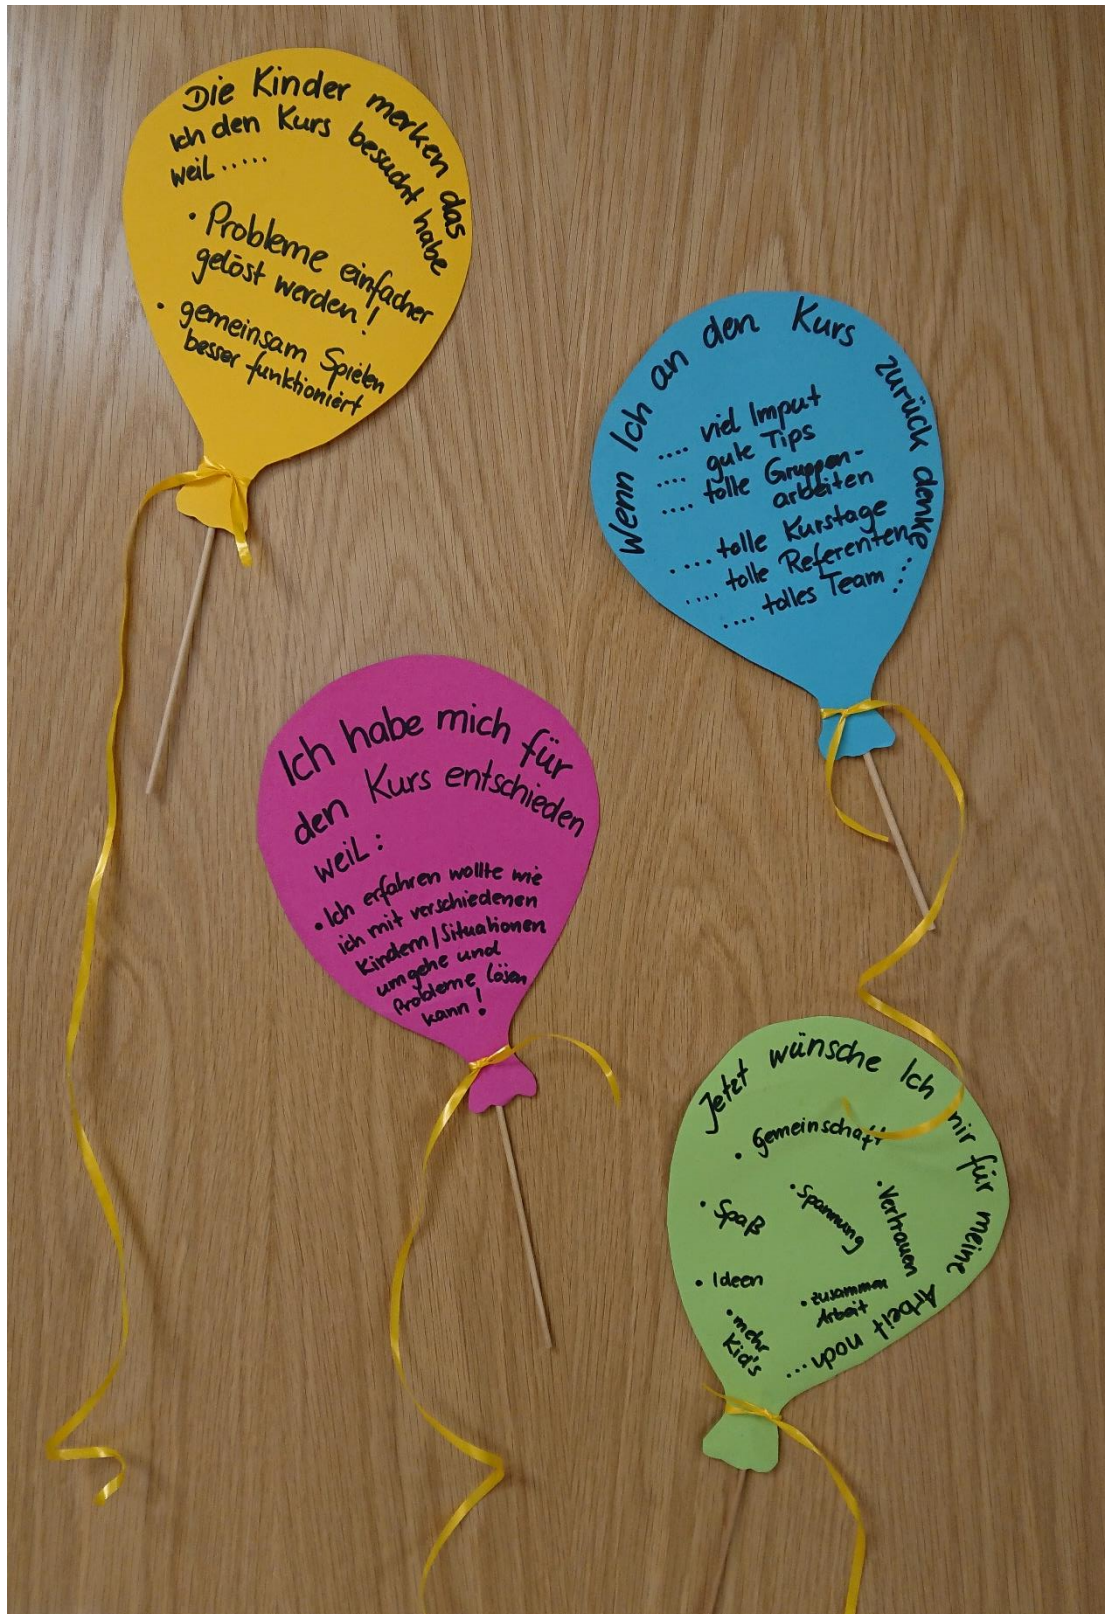 Die Kinder merken das
Ich den Kurs besucht habe
weil .....
• Probleme einfacher
gelöst werden!
• gemeinsam Spielen
besser funktioniert
Wenn Ich an den Kurs zurück denke ....
.... viel Imput
.... gute Tips
.... tolle Gruppen-
arbeiten
.... tolle Kurstage
.... tolle Referenten
.... tolles Team
Ich habe mich für
den Kurs entschieden
weil:
• Ich erfahren wollte wie
ich mit verschiedenen
Kindern/Situationen
umgehe und
Probleme lösen
kann!
Jetzt wünsche Ich mir für meine Arbeit noch...
• Gemeinschaft
• Spaß
• Spannung
• Vertrauen
• Ideen
• zusammen
Arbeit
• mehr
Kid's